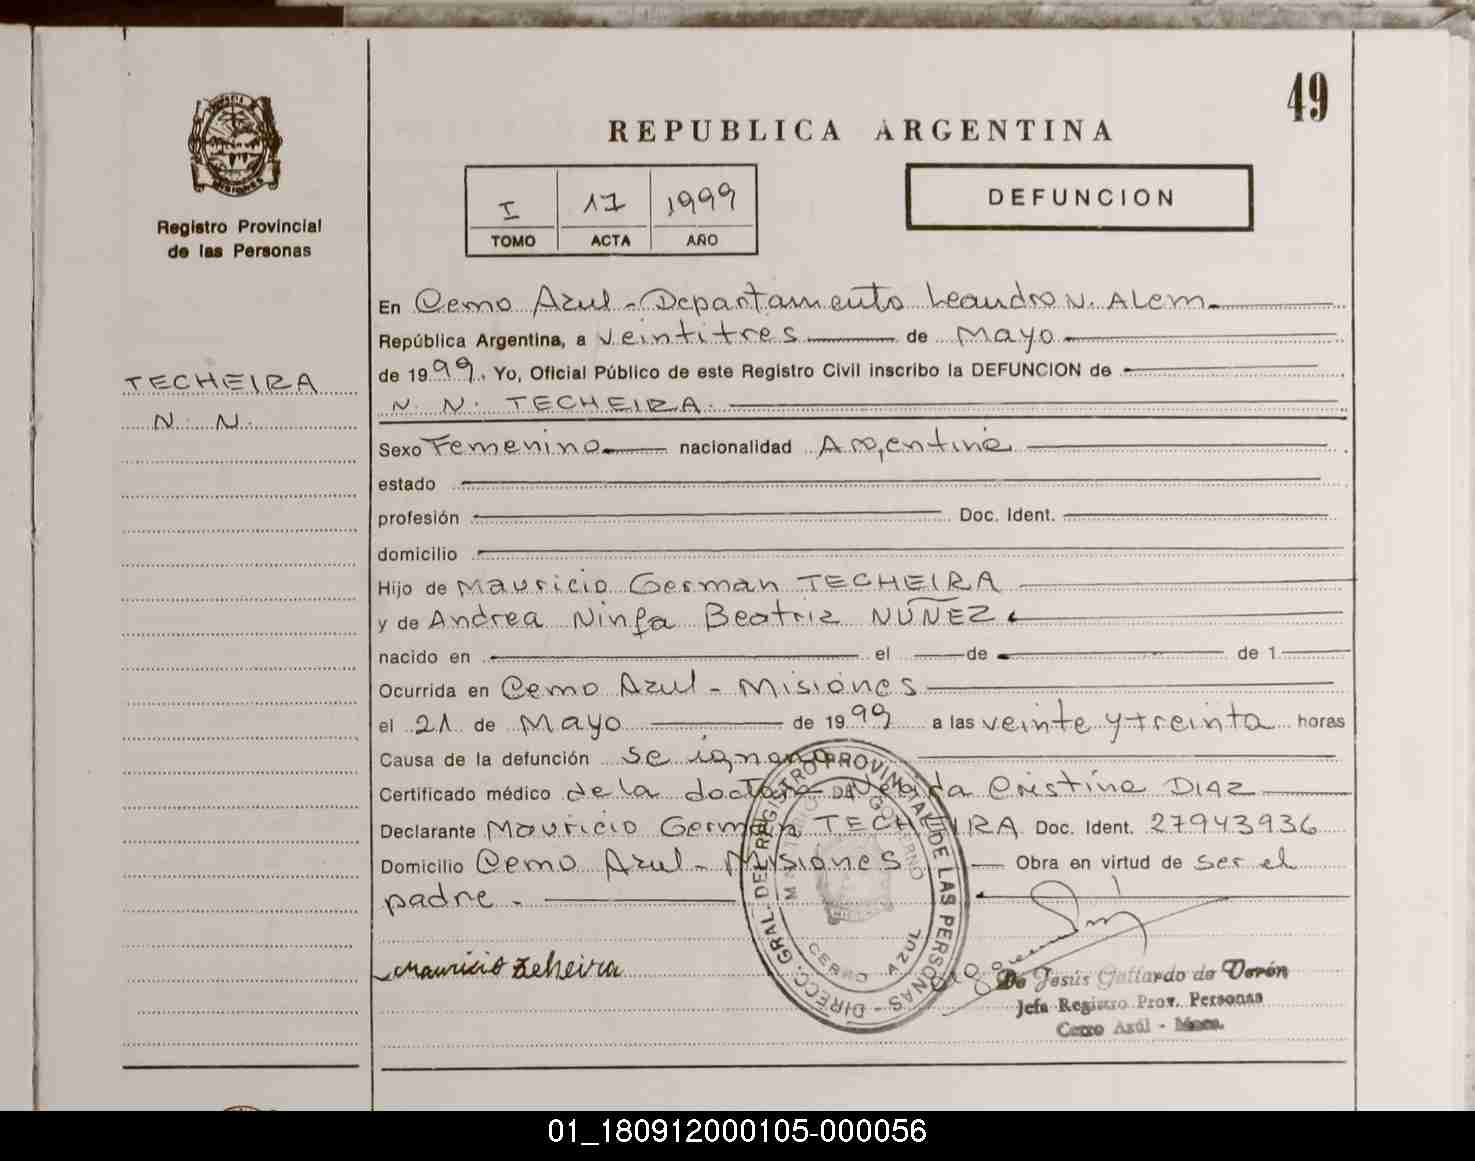 49
REPUBLICA ARGENTINA
I 17 1999
TOMO ACTA AÑO
DEFUNCION
MISIONES
Registro Provincial
de las Personas
TECHEIRA
N. N.
En Cerro Azul - Departamento Leandro N. ALEM.
República Argentina, a veintitres de Mayo
de 1999. Yo, Oficial Público de este Registro Civil inscribo la DEFUNCION de
N. N. TECHEIRA.
Sexo Femenino nacionalidad Argentina
estado
profesión Doc. Ident.
domicilio
Hijo de Mauricio German TECHEIRA
y de Andrea Ninfa Beatriz NUÑEZ
nacido en el de de 1
Ocurrida en Cerro Azul - Misiones
el 21 de Mayo de 1999 a las veinte y treinta horas
Causa de la defunción se ignora
Certificado médico de la doctora Cristina DIAZ
Declarante Mauricio German TECHEIRA Doc. Ident. 27943936
Domicilio Cerro Azul - Misiones Obra en virtud de ser el
padre.
DIRECC. GRAL. DEL REGISTRO PROVINCIAL DE LAS PERSONAS
MINISTERIO DE GOBIERNO
CERRO AZUL
Mauricio Techeira
De Jesús Gallardo de Verón
Jefa Registro Prov. Personas
Cerro Azúl - Mnes.
01_180912000105-000056